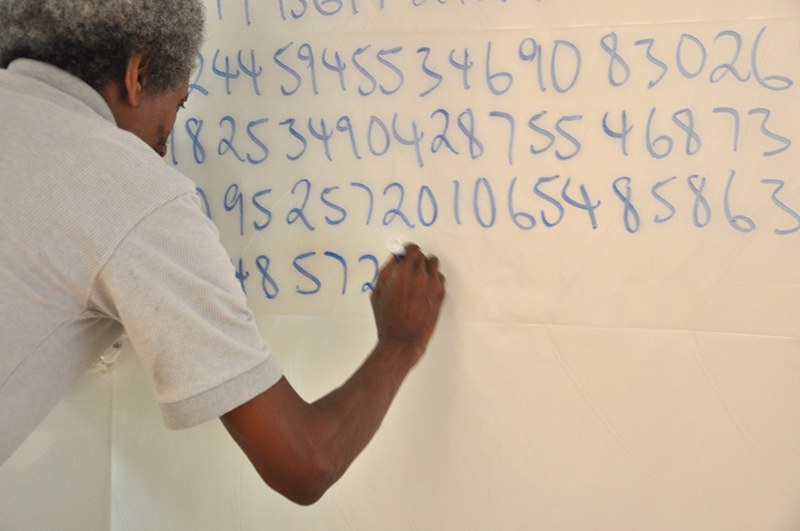 244594553469083026
82534904287554 6873
952572010654 85863
48572